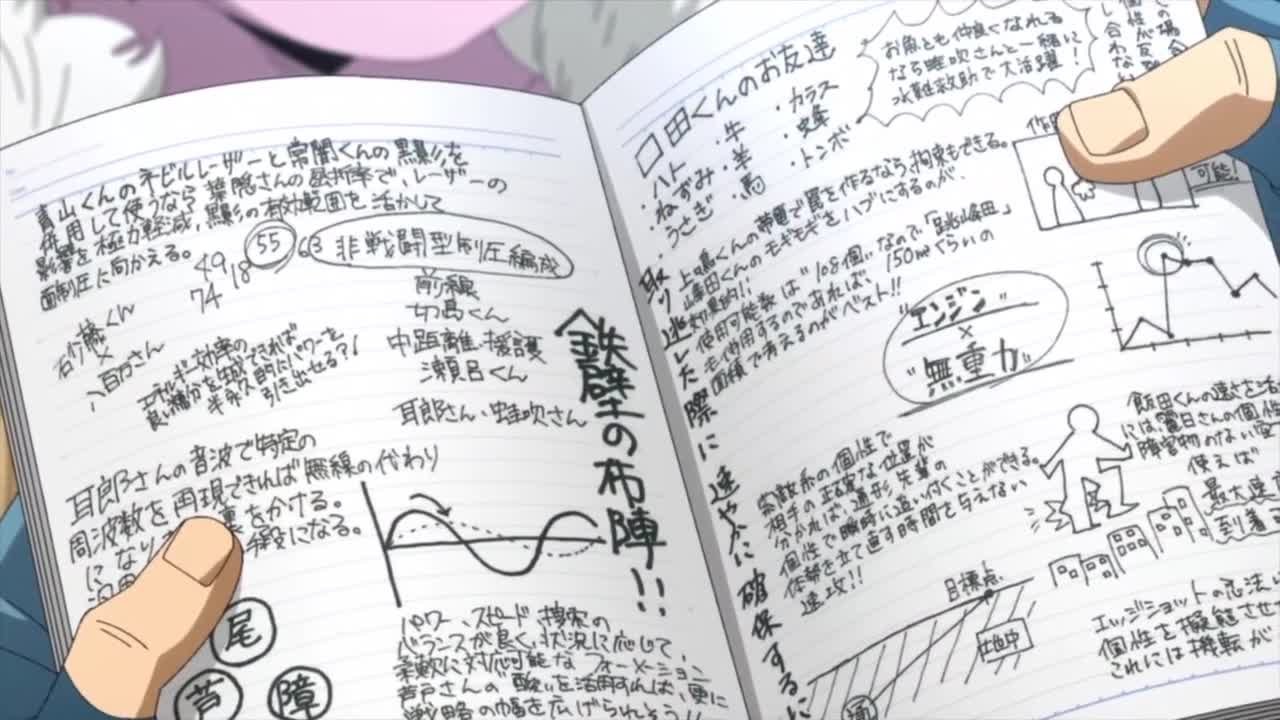 青山くんのネビルレーザーと常闇くんの黒影を
併用して使うなら葉隠さんの屈折率で、レーザーの
影響を極力軽減、黒影の有効範囲を活かして
面制圧に向かえる。
49
18
74
55
63
非戦闘型制圧編成
前線
切島くん
中距離・援護
瀬呂くん
耳郎さん・蛙吹さん
砂藤くん
×
八百万さん
エネルギー効率の
良い糖分を生成できれば
半永久的にパワーを
引き出せる?!
鉄壁の布陣!!
耳郎さんの音波で特定の
周波数を再現できれば無線の代わり
にな
をかける。
になる。
尾
芦
障
パワー、スピード、捜索の
バランスが良く、状況に応じて、
柔軟に対応可能なフォーメーション
芦戸さんの酸いを活用すれば、更に
戦略の幅を広げられそう!!
口田くんのお友達
・ハト
・ねずみ
・うさぎ
・牛
・羊
・馬
・カラス
・蜂
・トンボ
お魚とも仲良くなれる
なら蛙吹さんと一緒に
水難救助で大活躍!
の場合
個性が
合わない
上鳴くんの帯電で罠を作るなら、拘束もできる。
峰田くんのモギモギをハブにするのが、
効果的!!
使用可能数は"108個"なので
も使用するのであれば、150㎡ぐらいの
面積で考えるのがベスト!!
可能!
"エンジン"
×
"無重力"
取り逃した際に速やかに確保するに
索敵系の個性で
相手の正確な位置が
分かれば、通形先輩の
個性で瞬時に追い付くことができる。
体勢を立て直す時間を与えない
速攻!!
目標点
地中
通
飯田くんの速さを活
には麗日さんの個性
障害物のない空
使えば
最大速
到着
エッジショットの忍法
個性を擬態させ
これには機転が